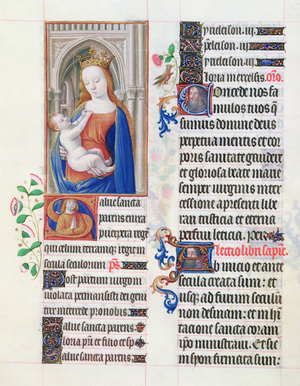 Salue sancta
parens enixa
puerpera regē
qui celum terramq; regit in
secula seculorum. ps.
Post partum uirgo in
uiolata permansisti dei geni
trix intercede pro nobis.
Salue sancta parens
Gloria pri et filio et sp
Salue sancta parens
Kyrieleison. iij
Xpeleison. iij
Kyrieleison. iij
Gloria in excelsis. Oro
Concede nos fa
mulos tuos q̄
sumus domine deus
perpetua mentis et cor
poris sanitate gaudere
et gloriosa beate marie
semper uirginis inter
cessione a presenti libe
rari tristicia et eterna
perfrui leticia. per.
Lectio libri sapie.
Ab inicio et ante
secula creata sum: et
usq; ad futurum seculū
non desinam: et in hī
tacione sancta coram
ipō ministraui. Et sic
in syon firmata sum: